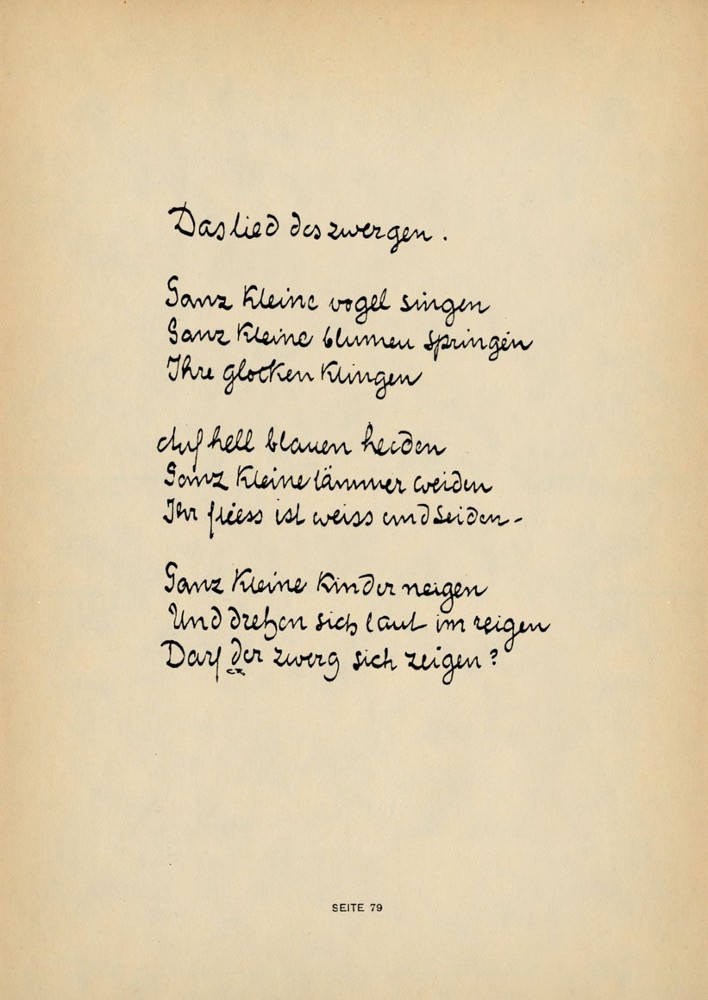 Das lied des zwergen.
Ganz kleine vogel singen
Ganz kleine blumen springen
Ihre glocken klingen
Auf hell blauen heiden
Ganz kleine lämmer weiden
Ihr fliess ist weiss und seiden-
Ganz kleine kinder neigen
Und drehen sich laut im reigen
Darf der zwerg sich zeigen?
SEITE 79